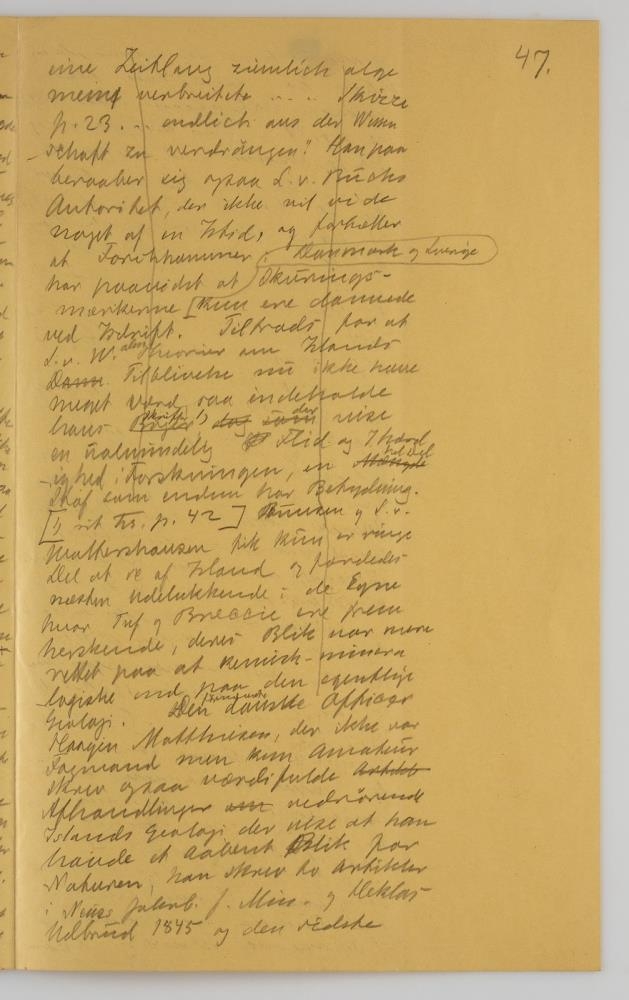 47.
eine Zeitlang ziemlich alge
meine verbreitete .... Skizze
p. 23 ... endlich aus der Wissen
-schaft zu verdrängen". Han paa
beraaber sig ogsaa L. v. Buchs
Autoritet, der ikke vil vide
noget af en Istid, og fortæller
at Forchhammer i Danmark og Sverige
har paavist at Skurings-
mærkerne [kun ere dannede
ved Isdrift. Tiltrods for at
S. v. W. Theorier om Islands
Tilblivelse nu ikke have
meget Værd saa indeholde
hans Skrift 1) der vise
en ualmindelig Flid og Ihærd
-ighed i Forskningen, en hel Del
Stof som endnu har Betydning.
[1) sit p. 42] Bunsen og S. v.
Waltershausen fik kun en ringe
Del at se af Island og færdedes
næsten udelukkende i de Egne
hvor Tuf og Breccie ere frem
herskende, deres Blik var mere
rettet paa at kemisk-minera
-logiske end paa den egentlige
Geologi. Den danske Officer
Haagen Matthiesen, der ikke var
Fagmand men kun Amateur
skrev ogsaa værdifulde
Afhandlinger vedrørende
Islands Geologi der vise at han
havde et aabent Blik for
Naturen, han skrev to Artikler
i Neues Jahrb. f. Min. og Heklas
Udbrud 1845 og den sidste